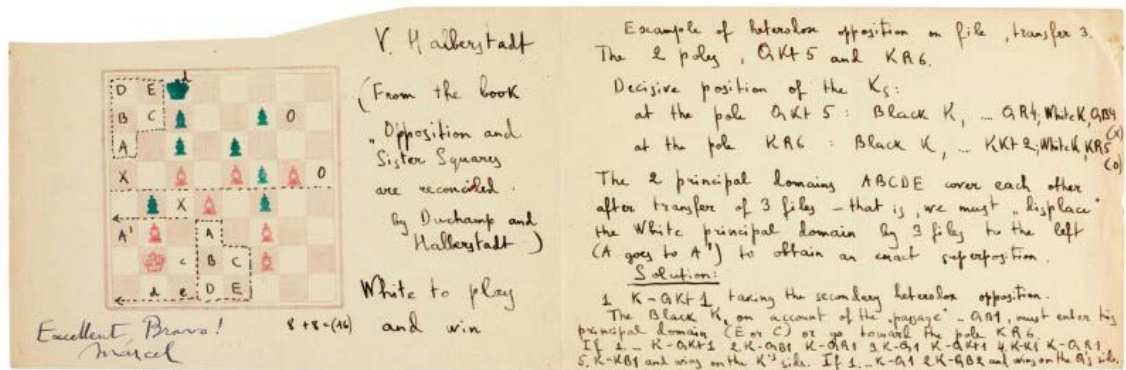 V. Halberstadt
(From the book
"Opposition and
Sister Squares
are reconciled.
by Duchamp and
Halberstadt)
White to play
and win
D E
B C O
A
X O
X
A' A
c B C
d e D E
8+8=(16)
Excellent, Bravo!
Marcel
Example of heterodox opposition on file, transfer 3.
The 2 poles, QKt 5 and KR6.
Decisive position of the Ks:
at the pole QKt 5: Black K, ... QR4, White K, QB4
(X)
at the pole KR6: Black K, ... KKt2, White K, KR5
(O)
The 2 principal domains ABCDE cover each other
after transfer of 3 files - that is, we must "displace"
the White principal domain by 3 files to the left
(A goes to A') to obtain an exact superposition.
Solution:
1 K-QKt1, taking the secondary heterodox opposition.
The Black K, on account of the "passage" - QB1, must enter his
principal domain (E or C) or go toward the pole KR6
If 1... K-QKt1 2 K-QB1 K-QR1 3 K-Q1 K-QKt1 4. K-K1 K-QR1
5. K-KB1 and wins on the K's side. If 1... K-Q1 2 K-QB2 and wins on the Q's side.